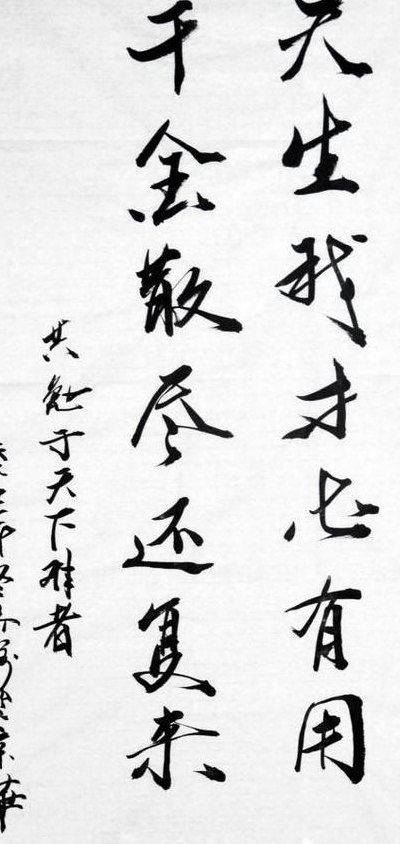 天生我才必有用
千金散尽还复来
共勉于天下胜者